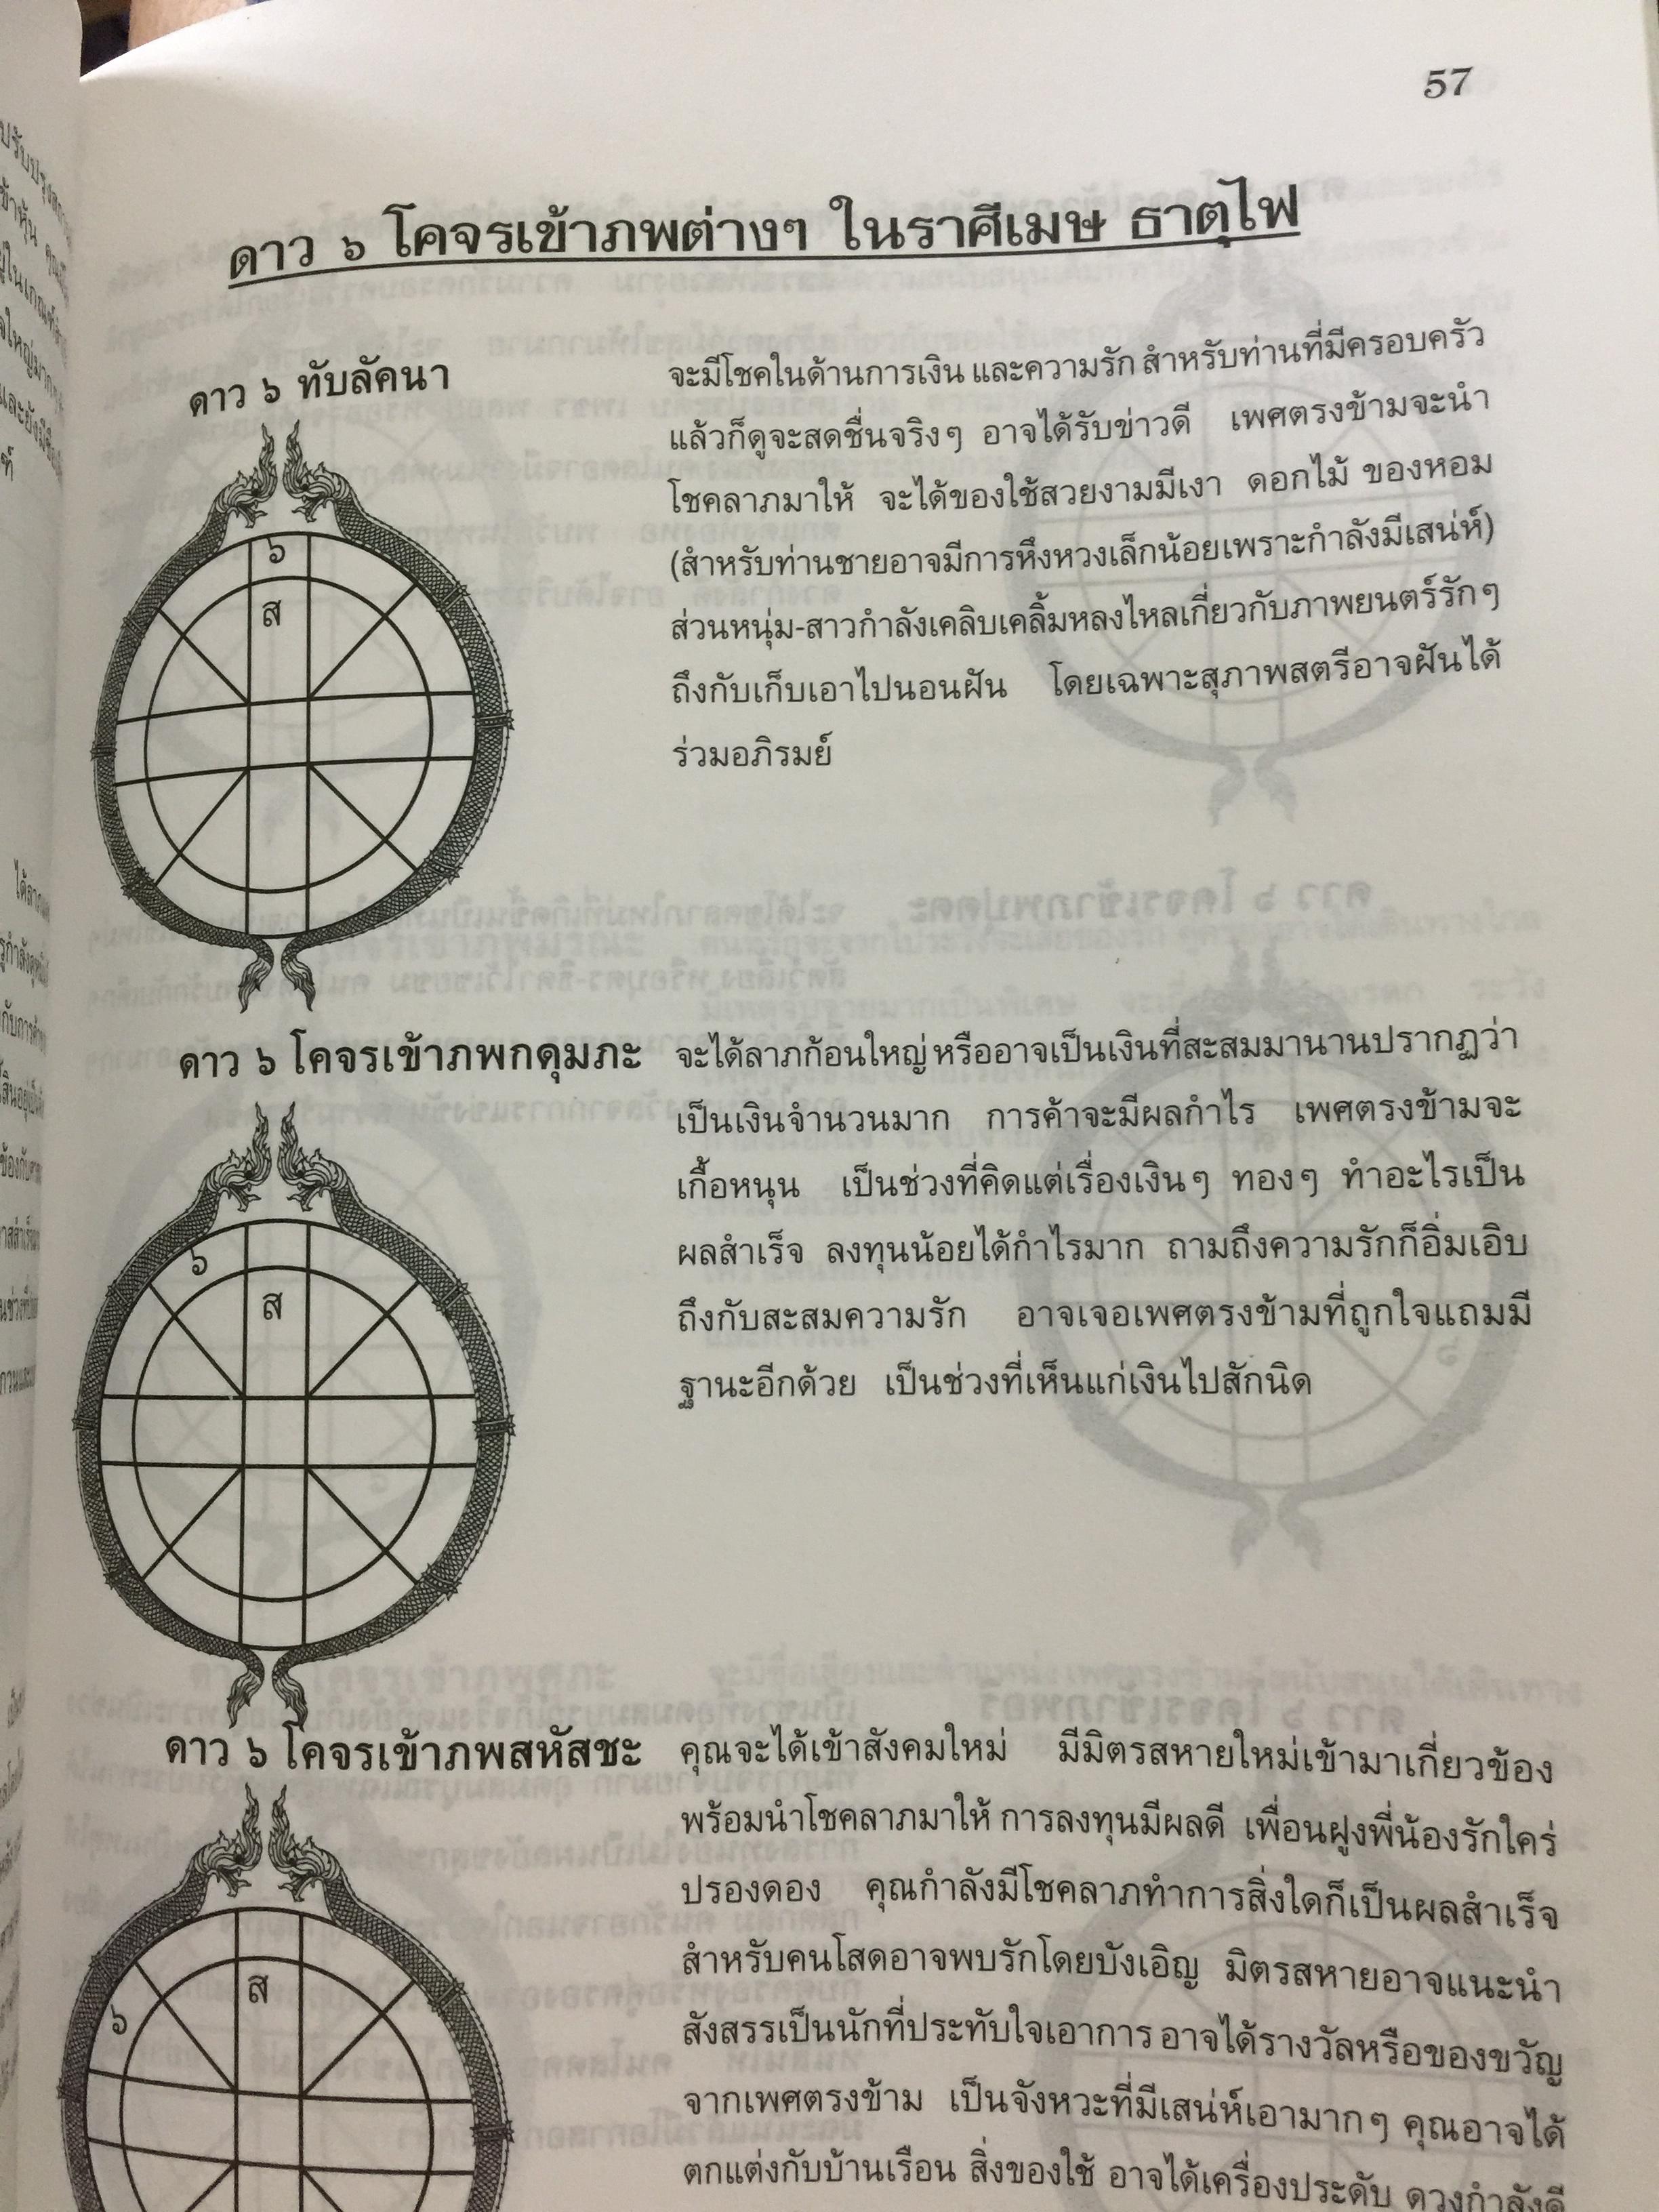 57
ดาว ๖ โคจรเข้าภพต่างๆ ในราศีเมษ ธาตุไฟ
ดาว ๖ ทับลัคนา
๖
ส
จะมีโชคในด้านการเงิน และความรัก สำหรับท่านที่มีครอบครัว
แล้วก็ดูจะสดชื่นจริงๆ อาจได้รับข่าวดี เพศตรงข้ามจะนำ
โชคลาภมาให้ จะได้ของใช้สวยงามมีเงา ดอกไม้ ของหอม
(สำหรับท่านชายอาจมีการหึงหวงเล็กน้อยเพราะกำลังมีเสน่ห์)
ส่วนหนุ่ม-สาวกำลังเคลิบเคลิ้มหลงไหลเกี่ยวกับภาพยนตร์รักๆ
ถึงกับเก็บเอาไปนอนฝัน โดยเฉพาะสุภาพสตรีอาจฝันได้
ร่วมอภิรมย์
ดาว ๖ โคจรเข้าภพกดุมภะ
๖
ส
จะได้ลาภก้อนใหญ่ หรืออาจเป็นเงินที่สะสมมานานปรากฏว่า
เป็นเงินจำนวนมาก การค้าจะมีผลกำไร เพศตรงข้ามจะ
เกื้อหนุน เป็นช่วงที่คิดแต่เรื่องเงินๆ ทองๆ ทำอะไรเป็น
ผลสำเร็จ ลงทุนน้อยได้กำไรมาก ถามถึงความรักก็อิ่มเอิบ
ถึงกับสะสมความรัก อาจเจอเพศตรงข้ามที่ถูกใจแถมมี
ฐานะอีกด้วย เป็นช่วงที่เห็นแก่เงินไปสักนิด
ดาว ๖ โคจรเข้าภพสหัสชะ
ส
๖
คุณจะได้เข้าสังคมใหม่ มีมิตรสหายใหม่เข้ามาเกี่ยวข้อง
พร้อมนำโชคลาภมาให้ การลงทุนมีผลดี เพื่อนฝูงพี่น้องรักใคร่
ปรองดอง คุณกำลังมีโชคลาภทำการสิ่งใดก็เป็นผลสำเร็จ
สำหรับคนโสดอาจพบรักโดยบังเอิญ มิตรสหายอาจแนะนำ
สังสรรเป็นนักที่ประทับใจเอาการ อาจได้รางวัลหรือของขวัญ
จากเพศตรงข้าม เป็นจังหวะที่มีเสน่ห์เอามากๆ คุณอาจได้
ตกแต่งกับบ้านเรือน สิ่งของใช้ อาจได้เครื่องประดับ ดวงกำลังดี